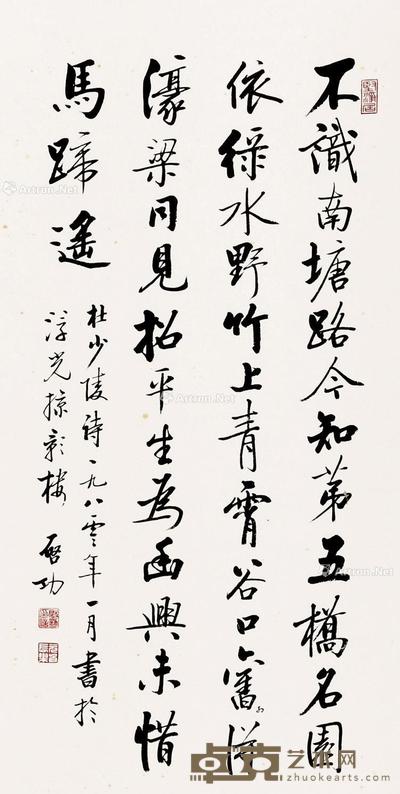 不識南塘路今知第五橋名園
依綠水野竹上青霄谷口舊相得
濠梁同見招平生為幽興未惜
馬蹄遙
杜少陵詩一九八零年一月書於
浮光掠影樓 啓功
Artron.Net
Artron.Net
Artron.Net
Artron.Net
卓克艺术网
www.zhuokearts.com